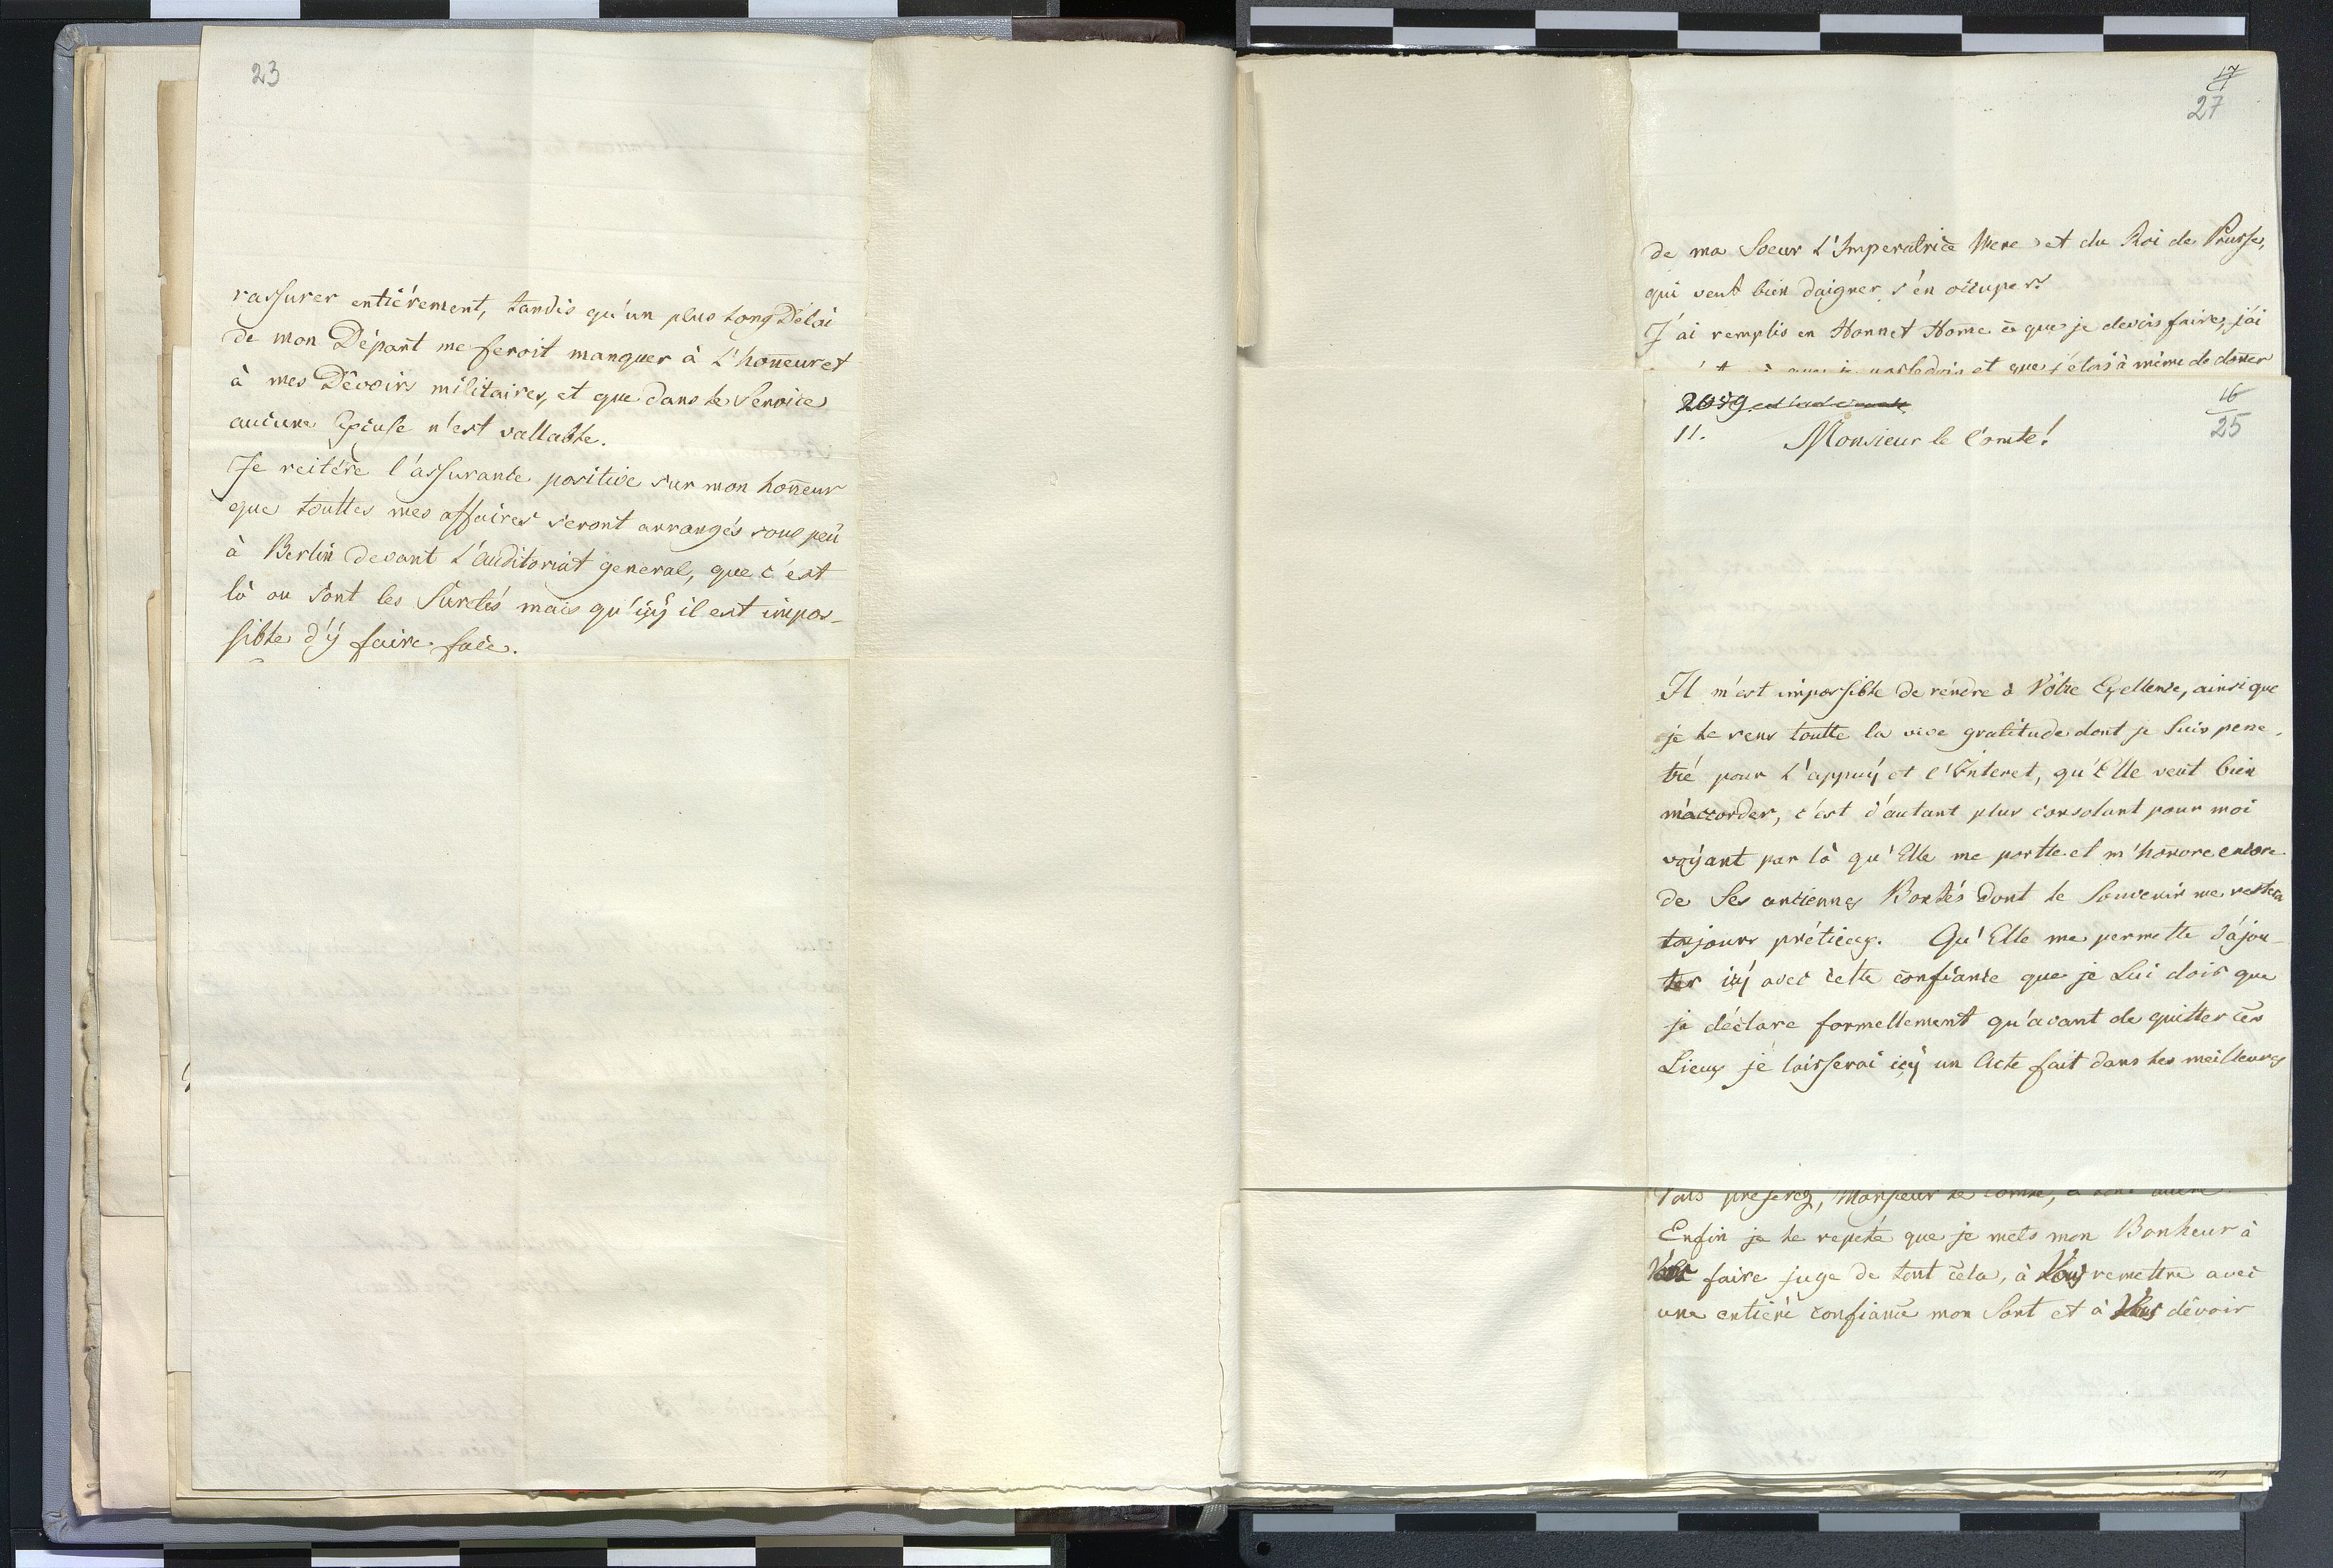 23
rassurer entiérement, tandis qu'un plus long Délai
de mon Départ me feroit manquer à L'hon̅eur et
à mes Dévoirs militaires, et que dans le Service
aucune Excuse n'est vallable.
Je reitére l'assurance positive sur mon hon̅eur
que touttes mes affaires seront arrangés sous peu
à Berlin devant L'auditoriat general, que c'est
là ou sont les Suretés mais qu'içÿ il est impos-
sible d'ÿ faire face.
17
27
de ma Soeur L'Imperatrice Mere et du Roi de Prusse,
qui veut bien daigner s'en occuper.
J'ai remplis en Honnet Hom̅e ce que je devois faire, j'ai
et que j'etois à même de don̅er
2059
16
25
11.
Monsieur le Comte!
Il m'est impossible de réndre à Votre Exellence, ainsi que
je le sens toutte la vive gratitude dont je suis pene-
tré pour L'appuÿ et l'Interet, qu'Elle veut bien
m'accorder, c'est d'autant plus consolant pour moi
voÿant par là qu'Elle me portte et m'honore encore
de Ses anciennes Bontés dont le Souvenir me restera
toujours prétieux. Qu'Elle me permette d'ájou-
ter içÿ avec cette confiance que je Lui dois que
je déclare formellement qu'avant de quitter ces
Lieux je laisserai içÿ un Acte fait dans les meilleures
Vous preferez, Monsieur le Comte, à
Enfin je le repete que je mets mon Bonheur à
Vous faire juge de tout cela, à Vous remettre avec
une entiére confiance mon Sort et à Vous dévoir